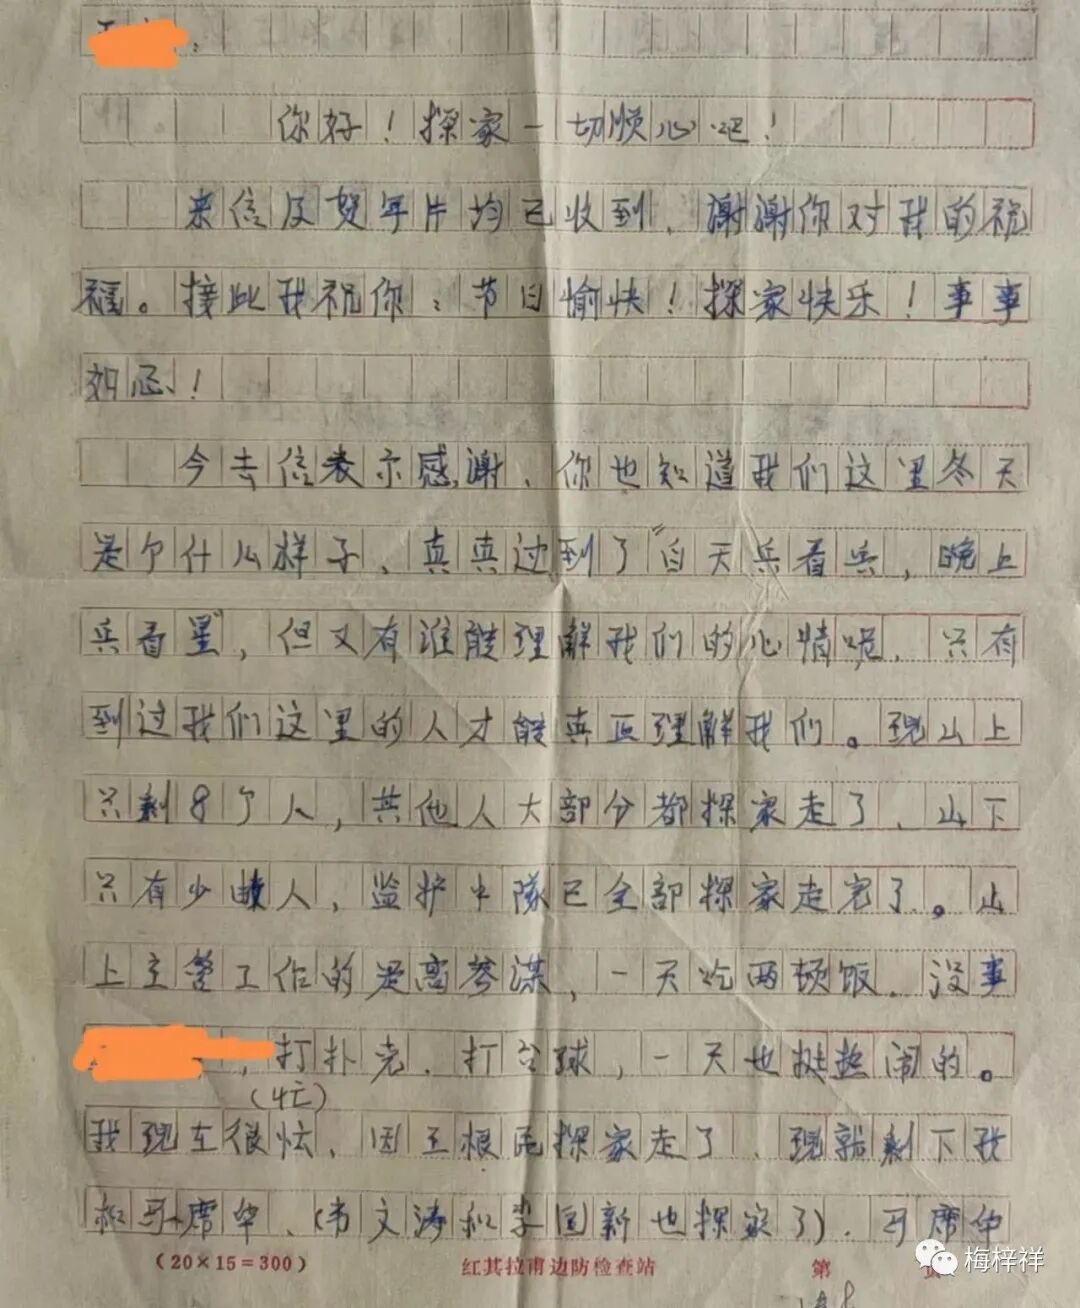 你好！探家一切顺心吧！
来信及贺年片均已收到，谢谢你对我的祝
福。接此我祝你：节日愉快！探家快乐！事事
如意！
今去信表示感谢，你也知道我们这里冬天
是个什么样子，真真过到了“白天兵看兵，晚上
兵看星”，但又有谁能理解我们的心情呢，只有
到过我们这里的人才能真正理解我们。现山上
只剩8个人，其他人大部分都探家走了，山下
只有少数人，监护中队已全部探家走完了。山
上主管工作的是高参谋，一天吃两顿饭，没事
，打扑克，打台球，一天也挺热闹的。
(忙)
我现在很怯，因王根民探家走了，现就剩下我
和马席华，(韦文涛和李国新也探家了)，马席华
(20×15=300) 红其拉甫边防检查站 第 页
梅梓祥